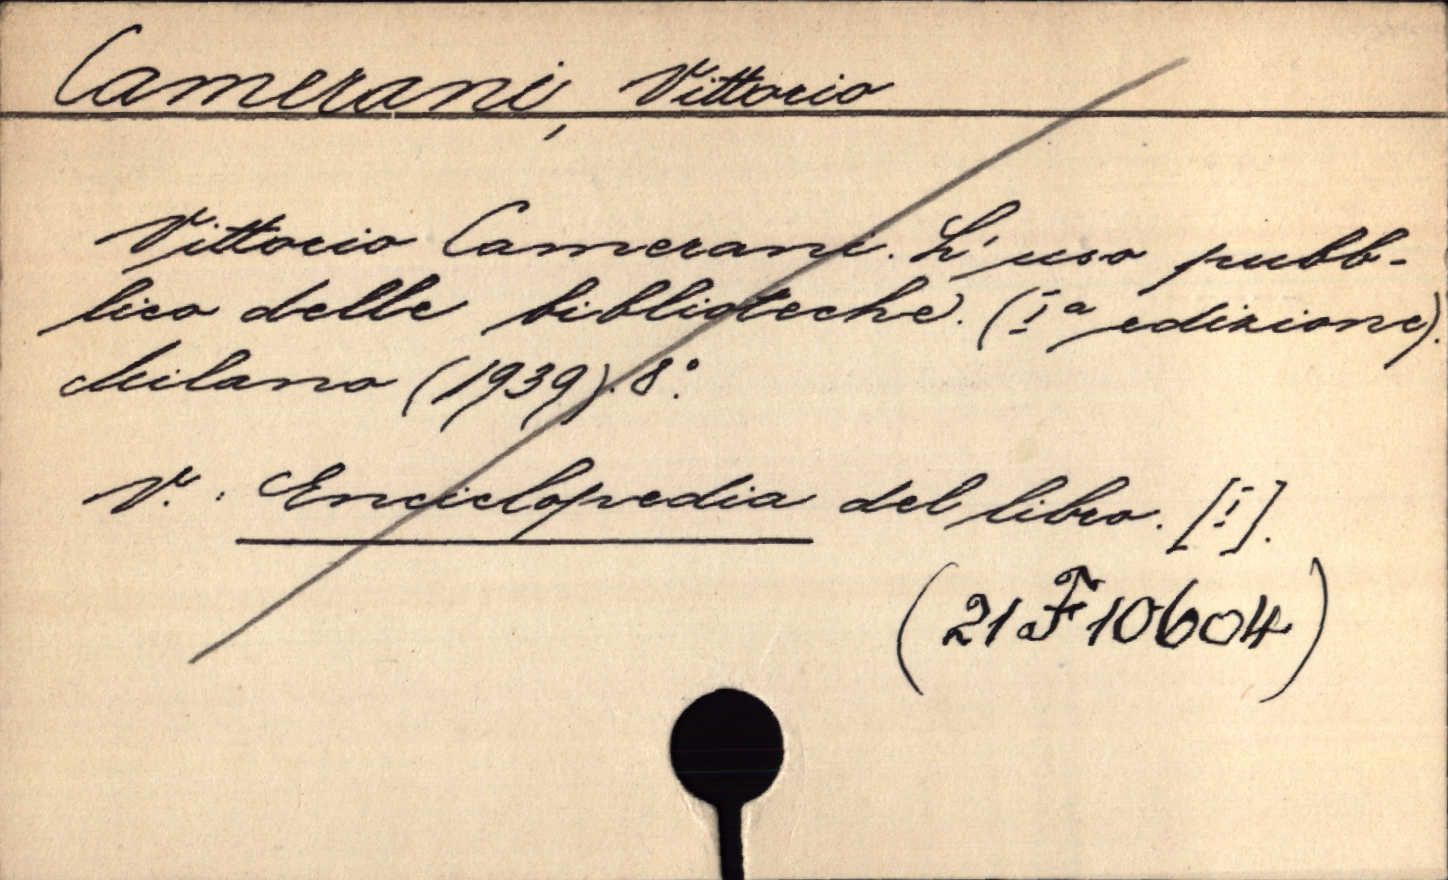 Camerani, Vittorio
Vittorio Camerani. L'uso pubb-
lico delle biblioteche. (Iª edizione).
Milano (1939). 8°.
V.: Enciclopedia del libro. [I].
(21 F 10604)